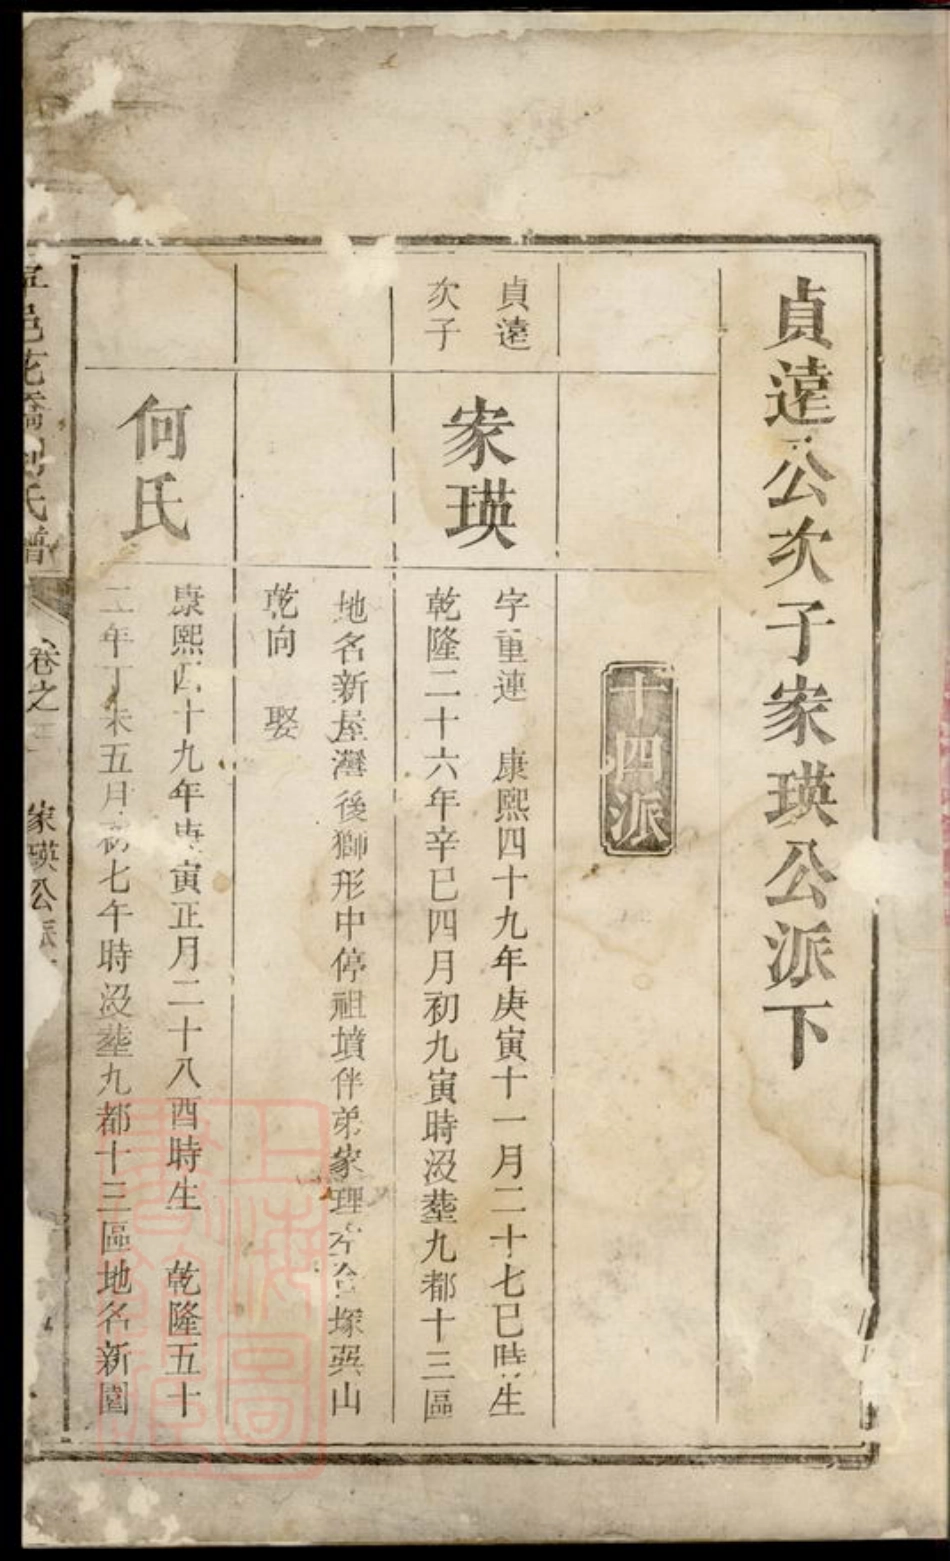 貞遠公次子家瑛公派下
十四派
貞遠
次子
家瑛
字重連　康熙四十九年庚寅十一月二十七巳時生
乾隆二十六年辛巳四月初九寅時沒塟九都十三區
地名新屋灣後獅形中停祖墳伴弟家理左合塚巽山
乾向　娶
何氏
康熙四十九年庚寅正月二十八酉時生　乾隆五十
二年丁未五月初七午時沒塟九都十三區地名新園
邑花橋劉氏譜
卷之三
家瑛公派
上海圖書館藏